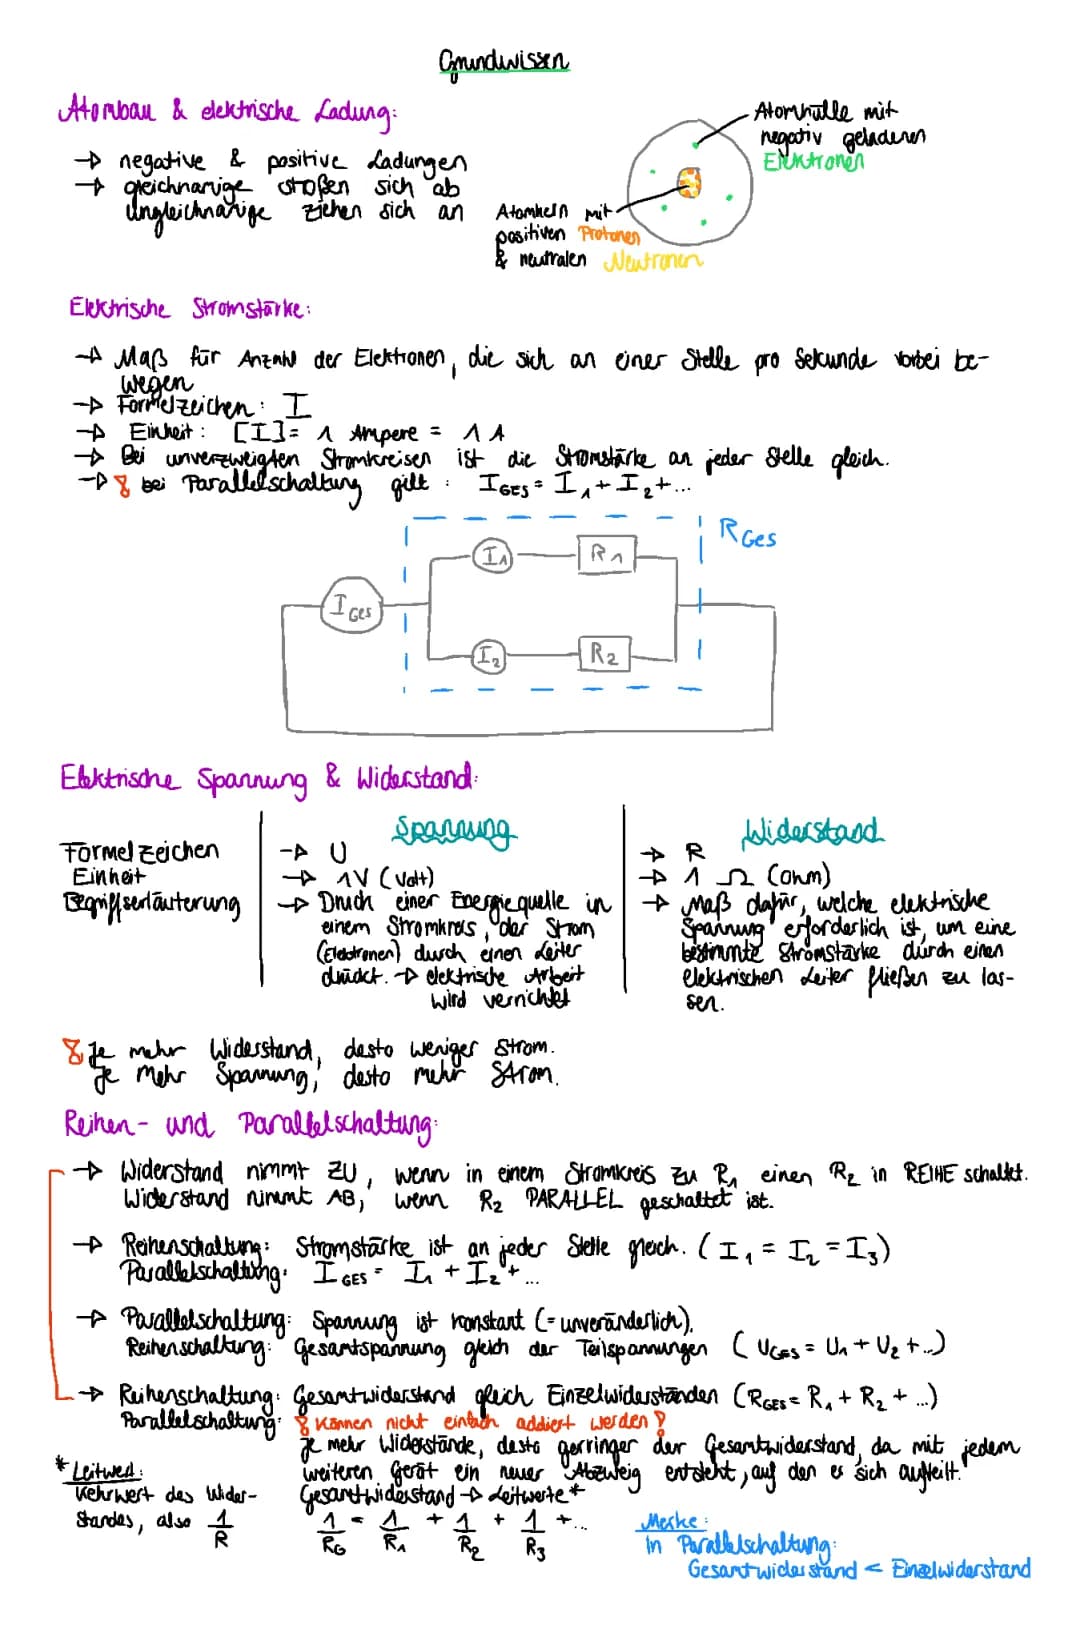 Grundwissen
Atombau & elektrische Ladung:
→ negative & positive Ladungen
→ gleichnamige stoßen sich ab
ungleichnamige ziehen sich an
Atomhülle mit
negativ geladenen
Elektronen
Atomkern mit
positiven Protonen
& neutralen Neutronen
Elektrische Stromstärke:
→ Maß für Anzahl der Elektronen, die sich an einer Stelle pro Sekunde vorbei be-
wegen
→ Formelzeichen: I
→ Einheit: [I] = 1 Ampere = 1 A
→ Bei unverzweigten Stromkreisen ist die Stromstärke an jeder Stelle gleich.
→ ! bei Parallelschaltung gilt: I GES = I₁ + I₂ + ...
R Ges
I₁ R₁
I Ges
I₂ R₂
Elektrische Spannung & Widerstand:
Spannung
Widerstand
Formelzeichen → U → R
Einheit → 1V (Volt) → 1 Ω (Ohm)
Begriffserläuterung → Druck einer Energiequelle in
einem Stromkreis, der Strom
(Elektronen) durch einen Leiter
drückt. → elektrische Arbeit
wird verrichtet
→ Maß dafür, welche elektrische
Spannung erforderlich ist, um eine
bestimmte Stromstärke durch einen
elektrischen Leiter fließen zu las-
sen.
! Je mehr Widerstand, desto weniger Strom.
Je mehr Spannung, desto mehr Strom.
Reihen- und Parallelschaltung:
→ Widerstand nimmt ZU, wenn in einem Stromkreis zu R₁ einen R₂ in REIHE schaltet.
Widerstand nimmt AB, wenn R₂ PARALLEL geschaltet ist.
→ Reihenschaltung: Stromstärke ist an jeder Stelle gleich. (I₁ = I₂ = I₃)
Parallelschaltung: I GES = I₁ + I₂ + ...
→ Parallelschaltung: Spannung ist konstant (= unveränderlich).
Reihenschaltung: Gesamtspannung gleich der Teilspannungen (U GES = U₁ + U₂ + ...)
→ Reihenschaltung: Gesamtwiderstand gleich Einzelwiderständen (R GES = R₁ + R₂ + ...)
Parallelschaltung: ! Können nicht einfach addiert werden !
Je mehr Widerstände, desto gerringer der Gesamtwiderstand, da mit jedem
weiteren Gerät ein neuer Abzweig entsteht, auf den er sich aufteilt.
Gesamtwiderstand → Leitwerte*
1/R_G = 1/R₁ + 1/R₂ + 1/R₃ + ...
* Leitwert:
Kehrwert des Wider-
standes, also 1/R
Merke:
in Parallelschaltung:
Gesamtwiderstand < Einzelwiderstand